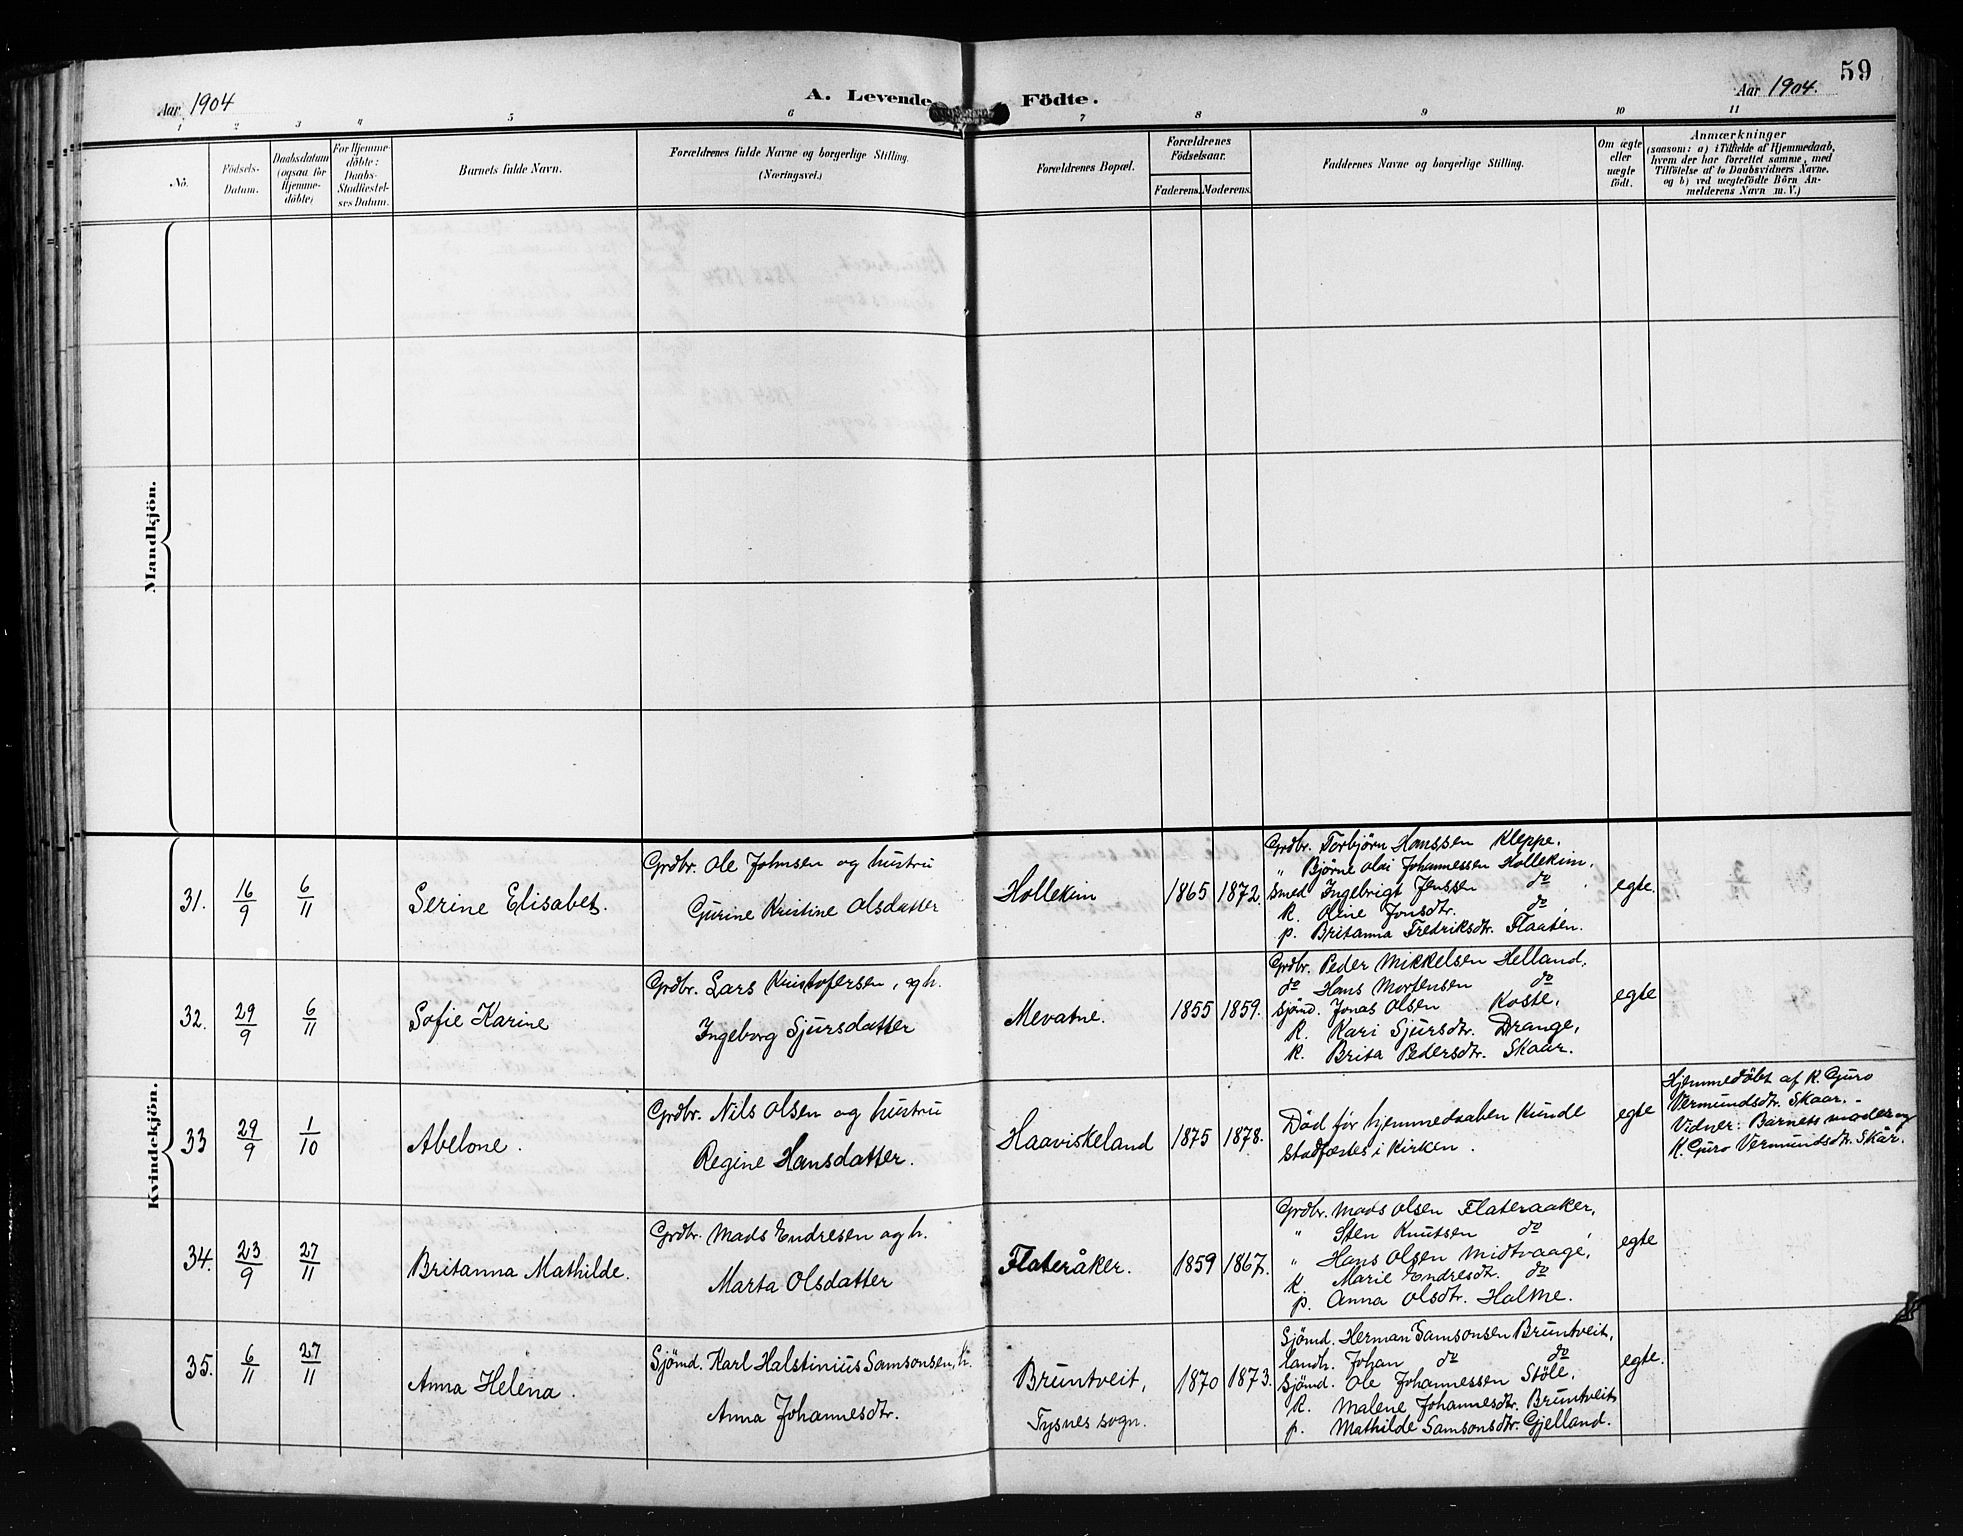 59
Aar 1904
A. Levende Födte.
Aar 1904.
1 2 3 4 5 6 7 8 9 10 11
No.
Födsels-
Datum.
Daabsdatum
(ogsaa for
Hjemme-
döbte)
For Hjemme-
döbte:
Daabs-
Stadfæstel-
ses Datum.
Barnets fulde Navn.
Forældrenes fulde Navne og borgerlige Stilling.
(Næringsvei.)
Forældrenes Bopæl.
Forældrenes
Födselsaar.
Faderens. Moderens.
Faddernes Navne og borgerlige Stilling.
Om ægte
eller
uægte
födt.
Anmærkninger
(saasom: a) i Tilfælde af Hjemmedaab,
hvem der har forrettet samme, med
Tilföielse af to Daabsvidners Navne.
og b) ved uægtefödte Börn An-
melderens Navn m. V.)
Mandkjön.
Kvindekjön.
31. 16/9 6/11 Serine Elisabet.
Grdbr. Ole Johnsen og hustru
Gurine Kristine Olsdatter
Hollekim 1865 1872.
Grdbr. Torbjørn Hanssen Kleppe,
" Bjørne Johannessen Hollekim,
Smed Ingebrigt Jenssen do
K. Oline Jonsdtr. do
p. Britanna Fredriksdtr. Flaaten.
egte.
32. 29/9 6/11 Sofie Karine
Grdbr. Lars Kristofersen, og h.
Ingeborg Sjursdatter
Mevatne. 1855 1859.
Grdbr. Peder Mikkelsen Helland,
do Hans Mortensen do
Sjömd. Jonas Olsen Koste,
K. Kari Sjursdtr. Drange,
K. Brita Pedersdtr. Skaar.
egte
33 29/9 1/10 Abelone.
Grdbr. Nils Olsen og hustru
Regine Hansdatter.
Haaviskeland 1875 1878.
Död før hjemmedaaben kunde
stadfæstes i kirken.
egte
Hjemmedöbt af K. Guro
Vermundsdtr. Skaar. -
Vidner: Barnets moder og
K. Guro Vermundsdtr. Skår.
34. 23/9 27/11 Britanna Mathilde.
Grdbr. Mads Endresen og h.
Marta Olsdatter
Flateråker. 1859 1867.
Grdbr. Mads Olsen Flateraaker,
" Sten Knutsen do,
" Hans Olsen Midtvaage,
K. Marie Endresdtr. do
p. Anna Olsdtr. Holme.
egte
35. 6/11 27/11 Anna Helena.
Sjömd. Karl Halstinius Samsonsen, h.
Anna Johannesdtr.
Bruntveit,
Tysnes sogn.
1870 1873.
Sjömd. Herman Samsonsen Bruntveit,
landh. Johan do do
Sjömd. Ole Johannessen Stöle,
K. Malene Johannesdtr. Bruntveit
p. Mathilde Samsonsdtr. Gjelland.
egte.